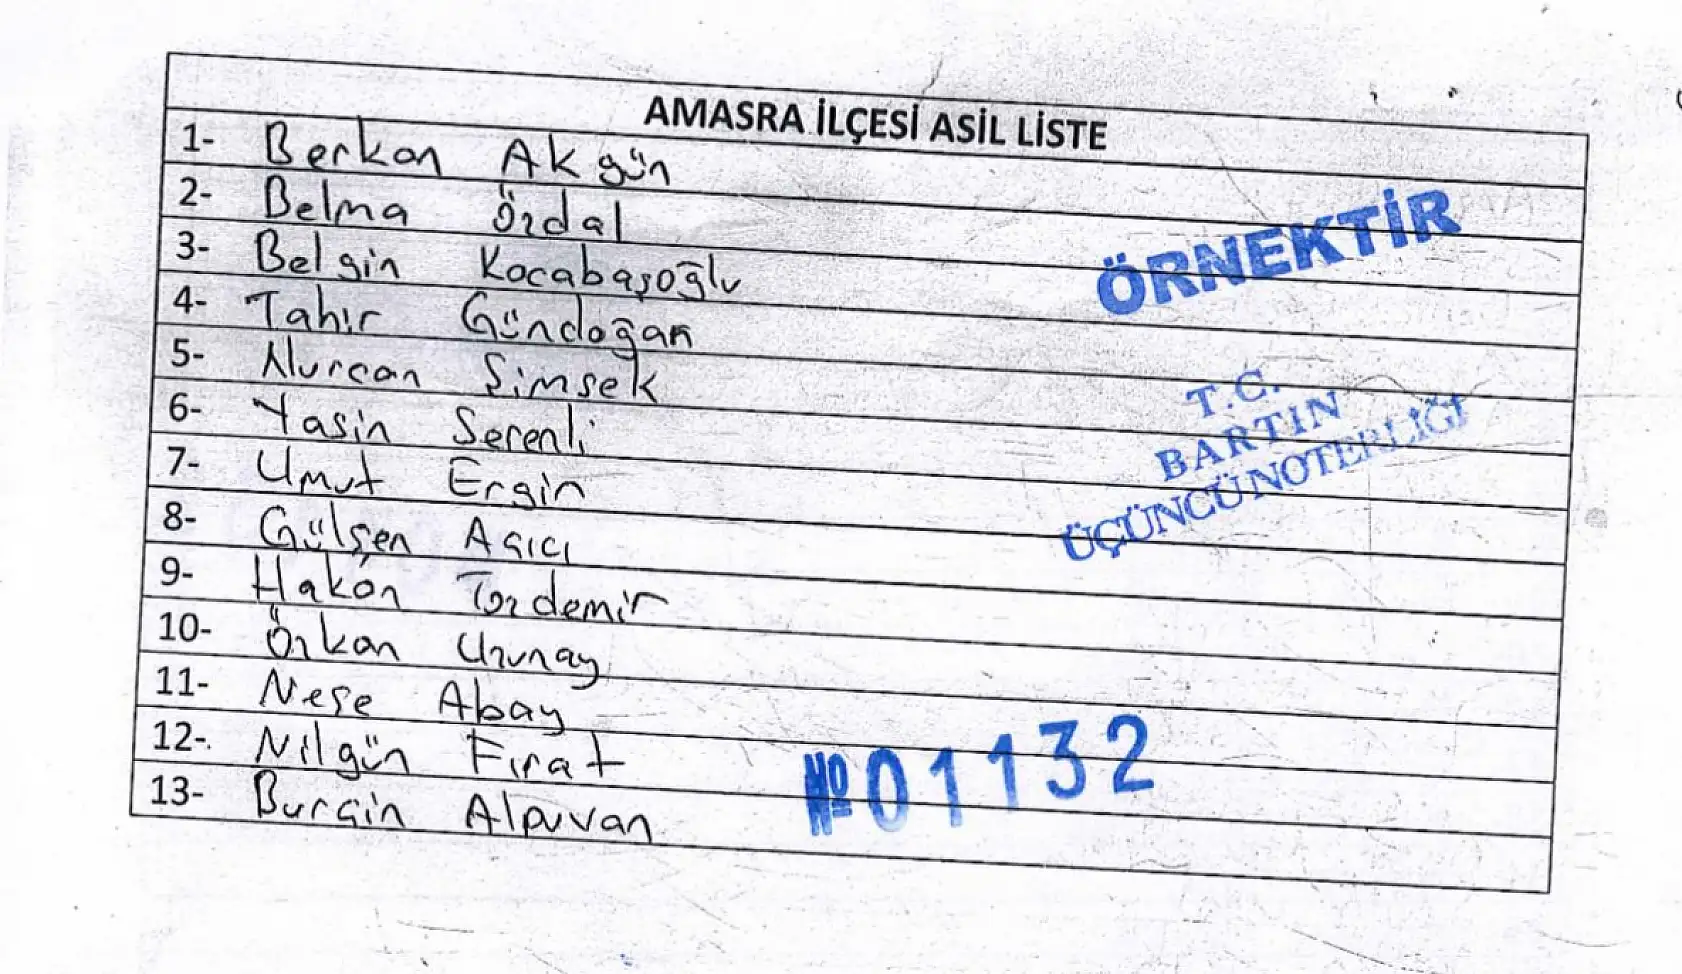 AMASRA İLÇESİ ASİL LİSTE
1- Berkan Akgün
2- Belma Özdal
3- Belgin Kocabaşoğlu
4- Tahir Gündoğan
5- Nurcan Şimşek
6- Yasin Serenli
7- Umut Ergin
8- Gülşen Agıcı
9- Hakan Tozdemir
10- Özkan Uzunay
11- Neşe Abay
12- Nilgün Fırat
13- Burçin Alpuvan
ÖRNEKTİR
T.C.
BARTIN
ÜÇÜNCÜ NOTERLİĞİ
№ 01132